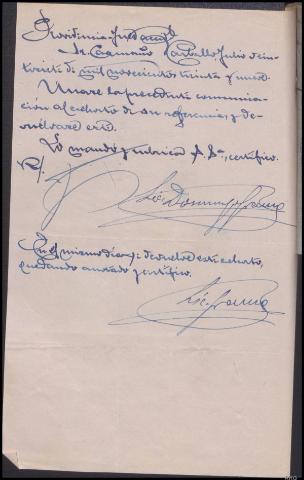 Providencia Juez
de Caamaño Carballo Julio
de mil novecientos treinta y uno.
Unase la precedente comunica-
ción al exhorto de su referencia, y de-
vuélvase este.
Lo mandó y rubrica S. Sª., certifico.
R/.
Domingo
En el mismo día se devuelve este exhorto,
quedando anotado, certifico.